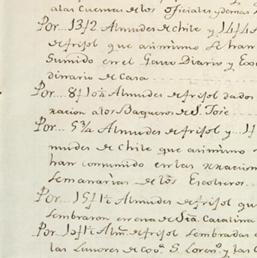 a las Cuentas de los oficiales y demas
Por... 13 1/2 Almudes de chile y 14 1/4
de frisol que asimismo se han
Sumido en el Gasto Diario y Ex
dinario de Casa
Por... 81 0 1/2 Almudes de frisol dados
racion a los Baqueros de S. Jose
Por... 5 3/4 Almudes de frisol y 1
mudes de chile que asimismo
han consumido en las raciones
Semanarias de los Escoteros
Por... 15 1 1/2 Almudes de frisol que
Sembraron en con de Sta. Catalina
Por... 1 Alm.s de frisol sembradas
las Lavores de S. Loren.o y las